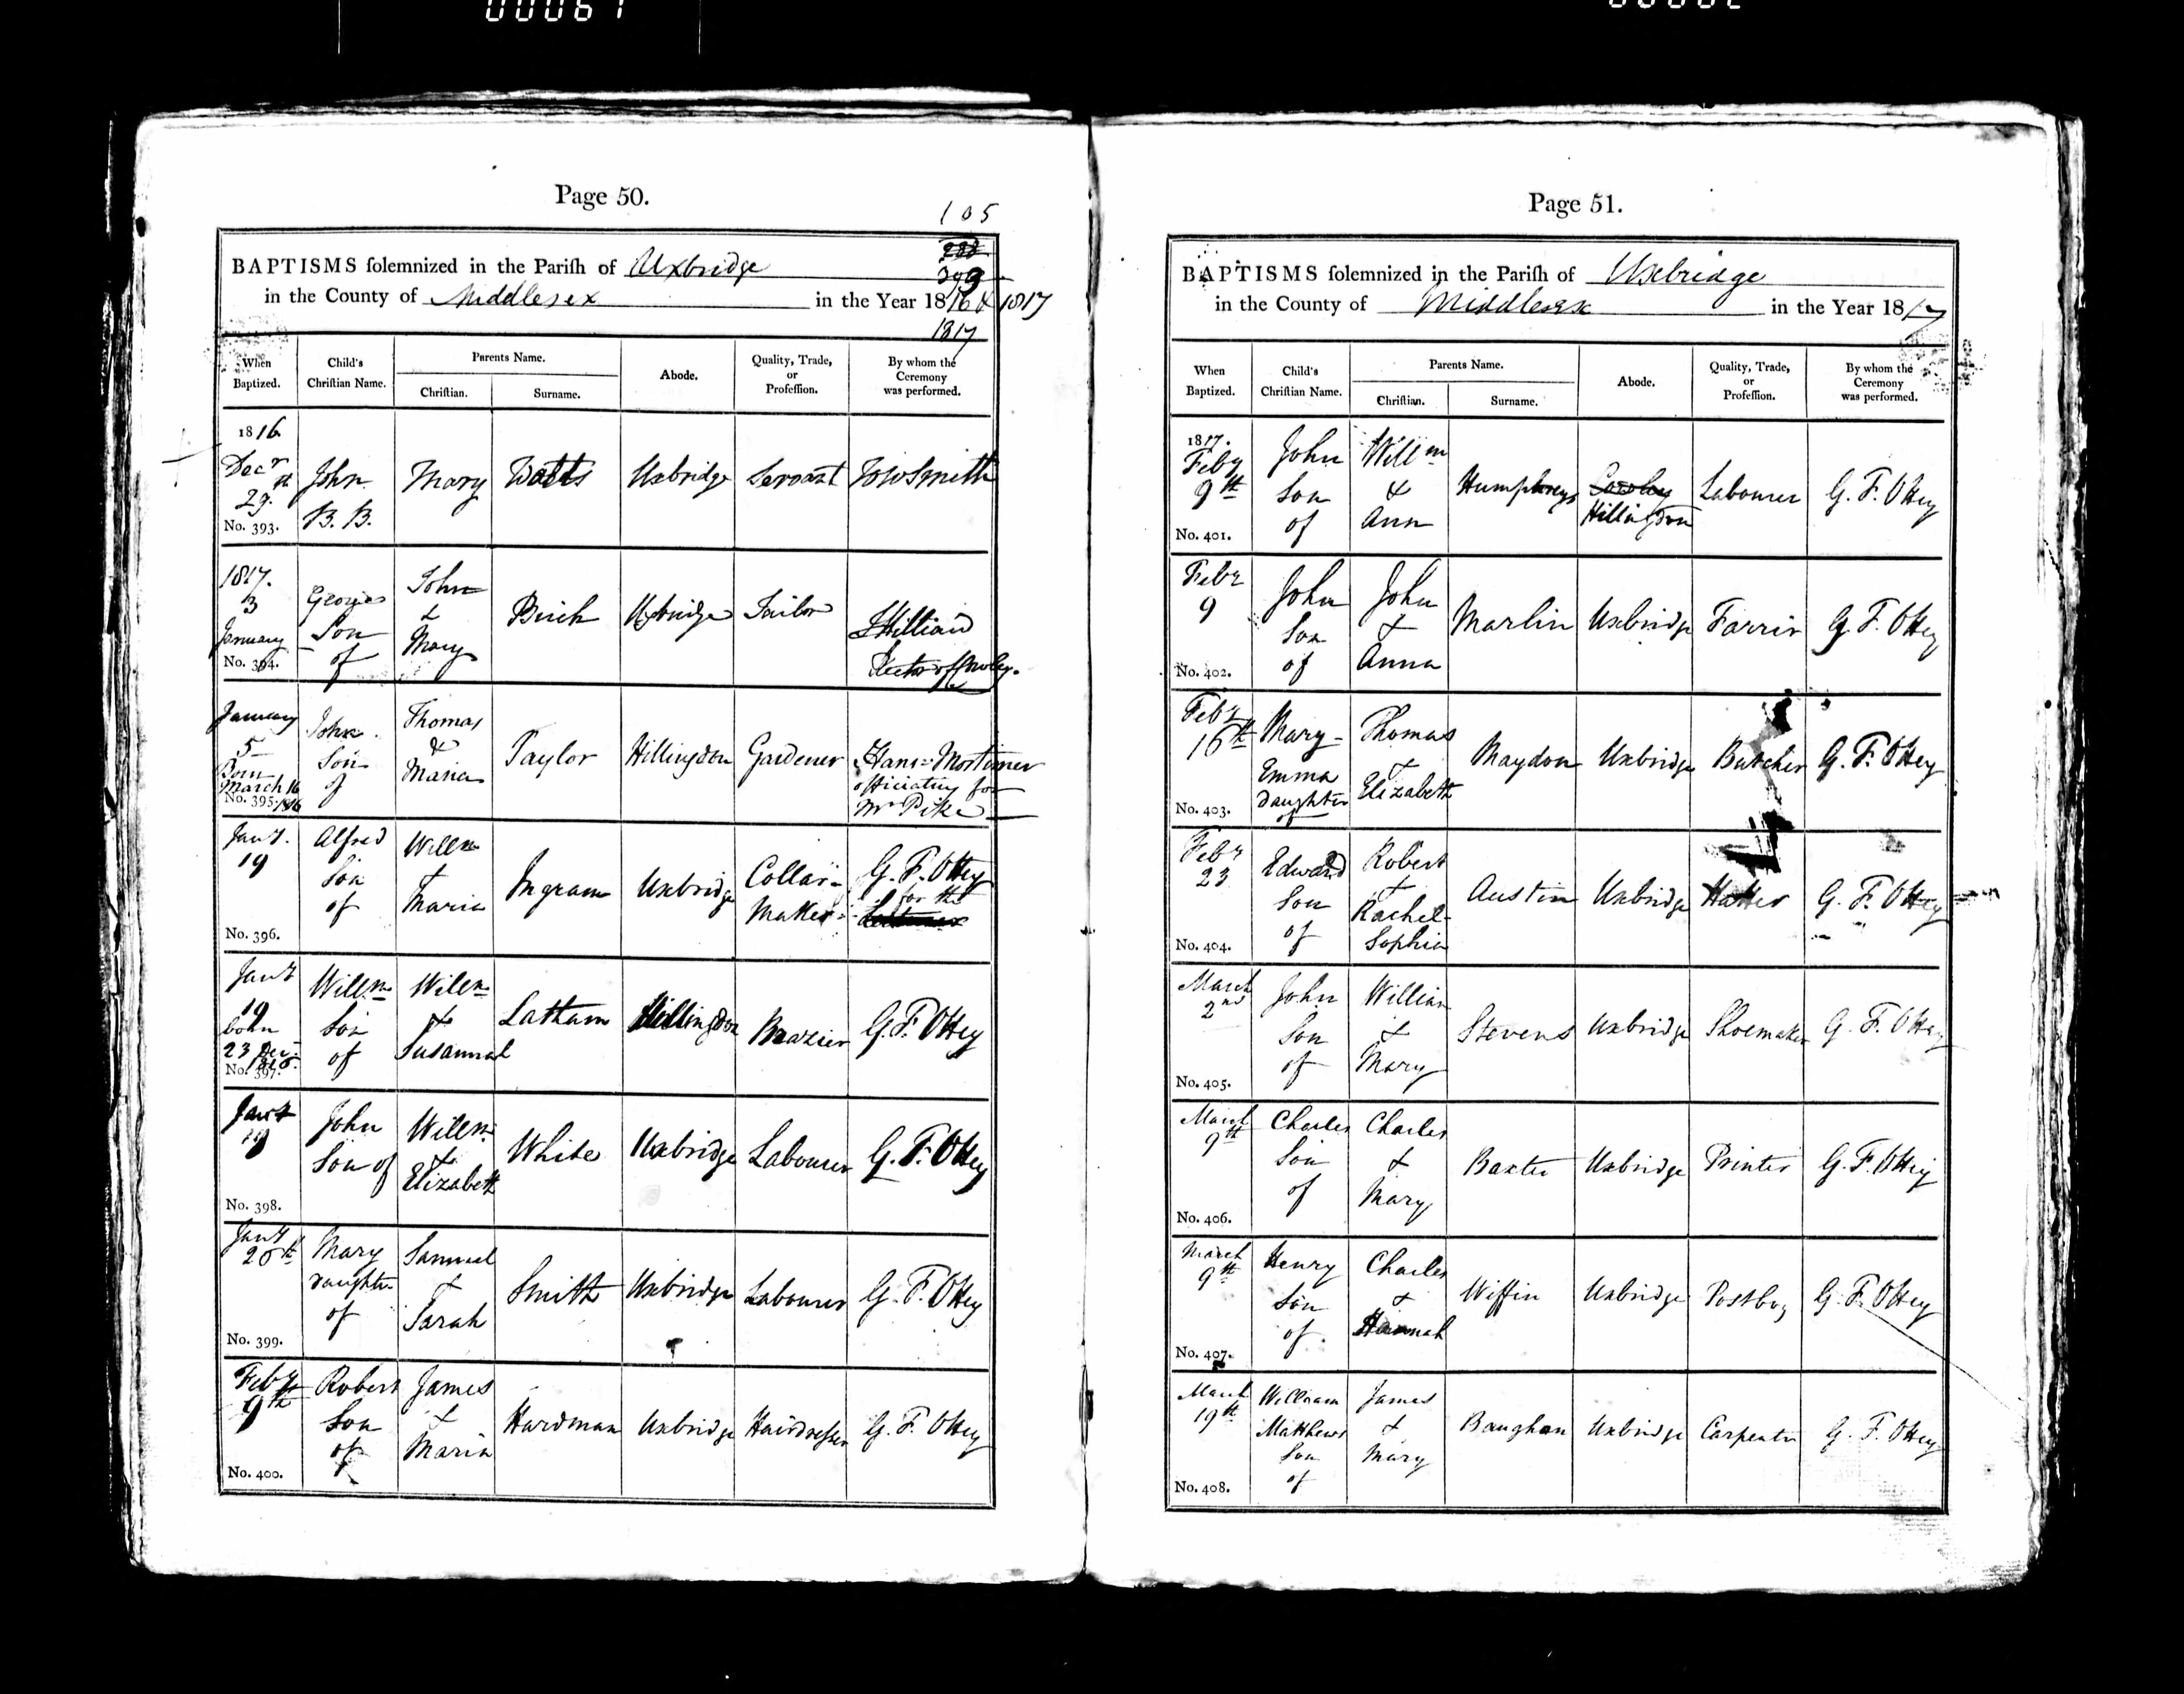 00061
Page 50.
105
288
309
BAPTISMS ſolemnized in the Pariſh of Uxbridge
in the County of Middlesex in the Year 1816 & 1817
1817
When Baptized.
Child's Chriſtian Name.
Parents Name.
Chriſtian.
Surname.
Abode.
Quality, Trade, or Profeſſion.
By whom the Ceremony was performed.
1816.
Decr 29th
No. 393.
John B. B.
Mary
Watts
Uxbridge
Servant
1817.
3
January
No. 394.
George Son of
John & Mary
Birch
Uxbridge
Tailor
J Hilliard
Rector of Cowley.
January
5
Born
March 16
1816
No. 395.
John Son of
Thomas & Maria
Taylor
Hillingdon
Gardener
Hans Mortimer
officiating for
Mr Pike
Jany.
19
No. 396.
Alfred Son of
Willm & Maria
Ingram
Uxbridge
Collar-Maker
G. F. Ottey
for the
Jany
19
born
23 Decr
1816.
No. 397.
Willm Son of
Willm & Susannah
Latham
Hillingdon
Brazier
G. F. Ottey
Jany
19
No. 398.
John Son of
Willm & Elizabeth
White
Uxbridge
Labourer
G. F. Ottey
Jany
26th
No. 399.
Mary Daughter of
Samuel & Sarah
Smith
Uxbridge
Labourer
G. F. Ottey
Feby
9th
No. 400.
Robert Son of
James & Maria
Hardman
Uxbridge
Hairdresser
G. F. Ottey
Page 51.
BAPTISMS ſolemnized in the Pariſh of Uxbridge
in the County of Middlesex in the Year 1817
When Baptized.
Child's Chriſtian Name.
Parents Name.
Chriſtian.
Surname.
Abode.
Quality, Trade, or Profeſſion.
By whom the Ceremony was performed.
1817.
Feby
9th
No. 401.
John Son of
Willm & Ann
Humphreys
Cowley
Hillingdon
Labourer
G. F. Ottey
Febr
9
No. 402.
John Son of
John & Anna
Marlin
Uxbridge
Farrier
G. F. Ottey
Febr
16th
No. 403.
Mary-Emma Daughter of
Thomas & Elizabeth
Maydon
Uxbridge
Butcher
G. F. Ottey
Febr
23
No. 404.
Edward Son of
Robert & Rachel-Sophia
Austin
Uxbridge
Hatter
G. F. Ottey
March
2nd
No. 405.
John Son of
William & Mary
Stevens
Uxbridge
Shoemaker
G. F. Ottey
March
9th
No. 406.
Charles Son of
Charles & Mary
Baxter
Uxbridge
Printer
G. F. Ottey
March
9th
No. 407.
Henry Son of
Charles & Hannah
Wiffin
Uxbridge
Postboy
G. F. Ottey
March
19th
No. 408.
William Matthews Son of
James & Mary
Baughan
Uxbridge
Carpenter
G. F. Ottey